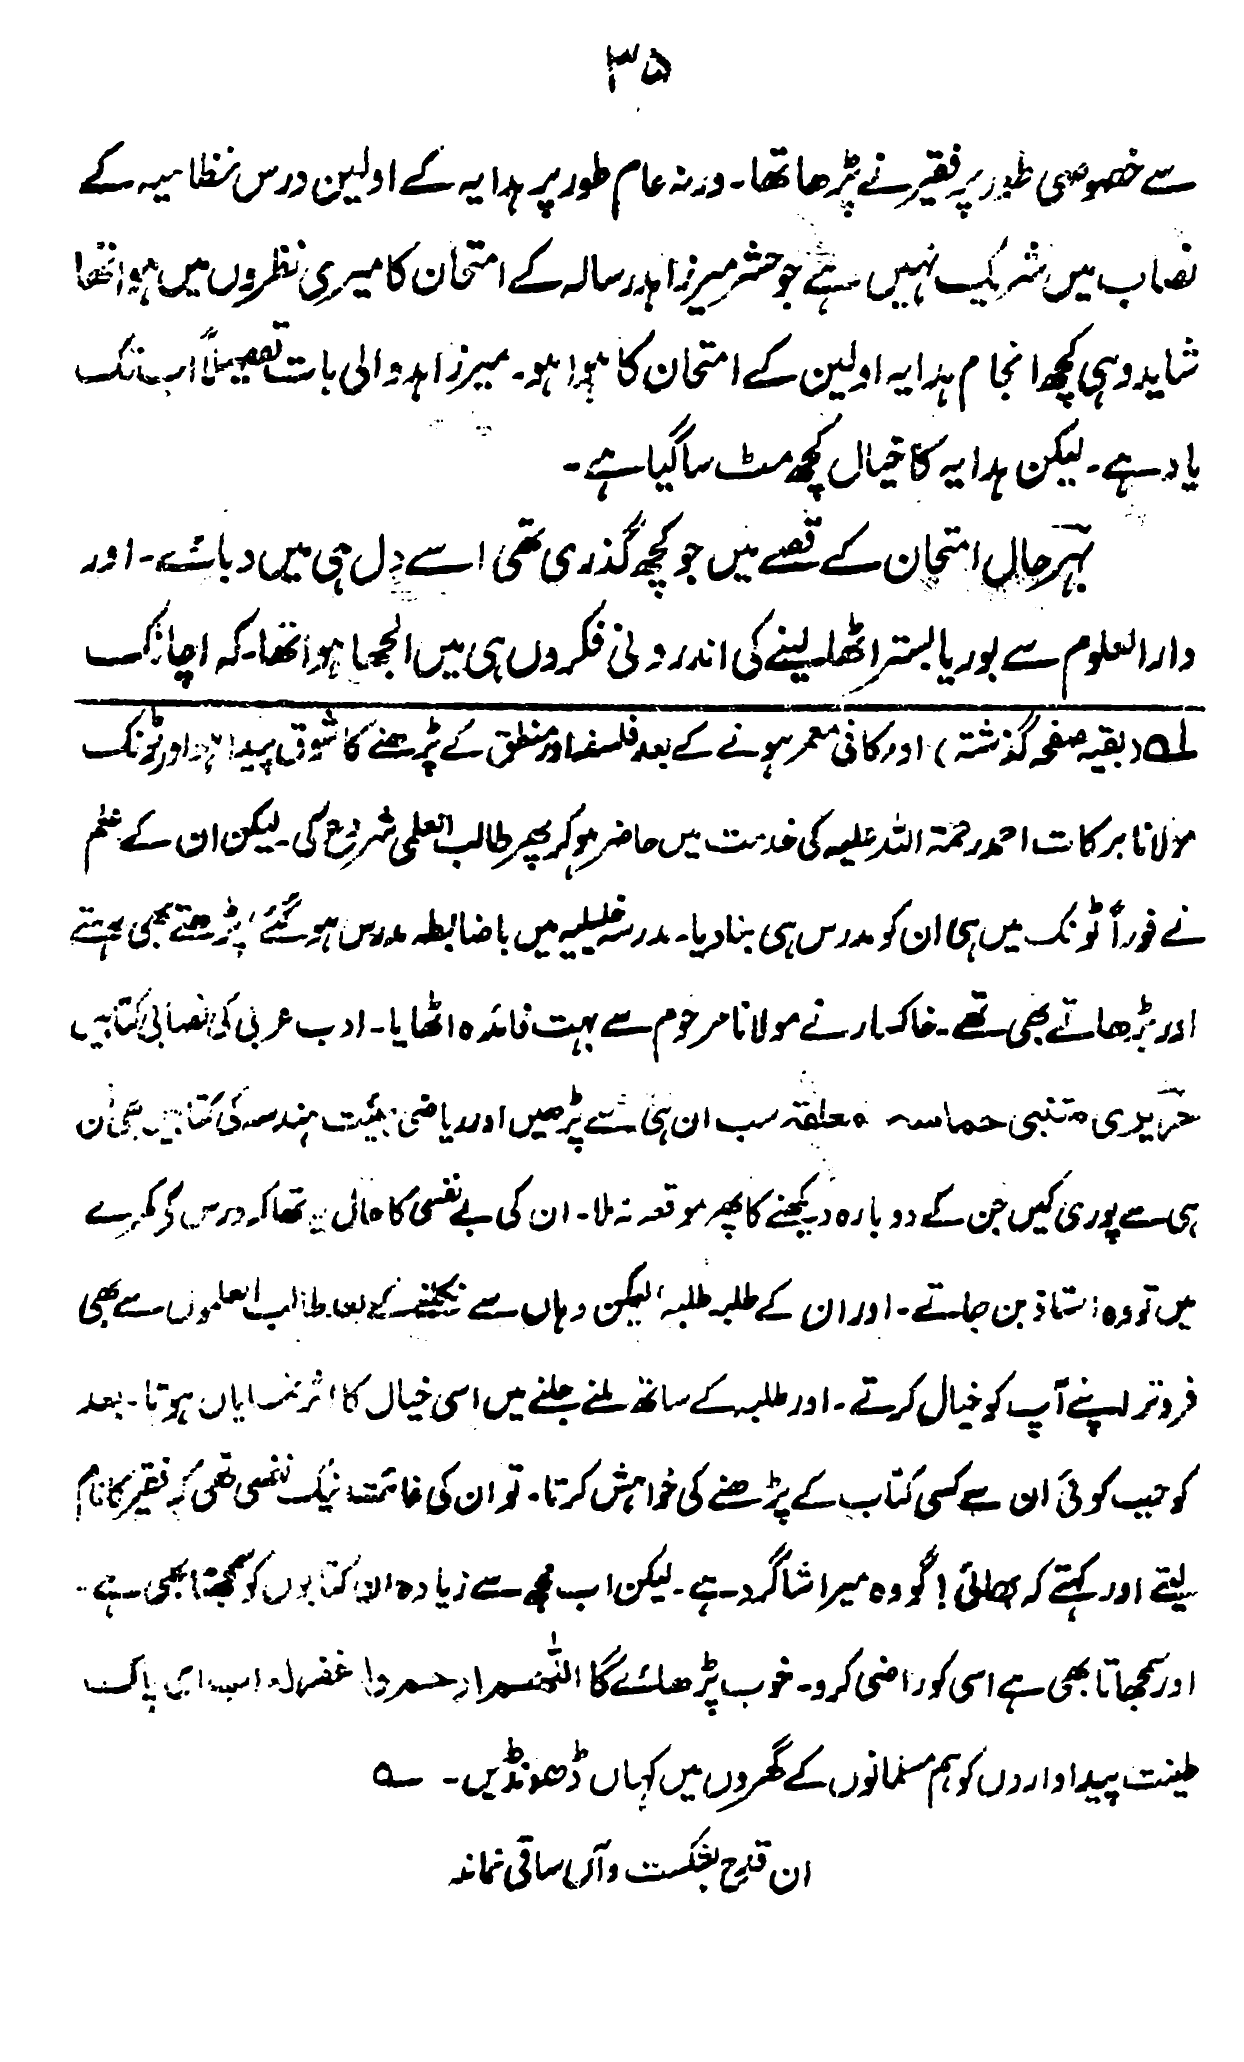 ۳۵
سے خصوصی طور پر فقیر نے پڑھا تھا۔ ورنہ عام طور پر ہدایہ کے اولین درس نظامیہ کے
نصاب میں شریک نہیں ہے جو حشر میرزاہد رسالہ کے امتحان کا میری نظروں میں ہوا تھا
شاید وہی کچھ انجام ہدایہ اولین کے امتحان کا ہوا ہو۔ میرزاہد والی بات تفصیلاً اب تک
یاد ہے۔ لیکن ہدایہ کا خیال کچھ مٹ سا گیا ہے۔
بہرحال امتحان کے قصے میں جو کچھ گذری تھی اسے دل ہی میں دبائے۔ اور
دارالعلوم سے بوریا بستر اٹھا لینے کی اندرونی فکروں ہی میں الجھا ہوا تھا۔ کہ اچانک
لہ (بقیہ صفحہ گذشتہ) اور کافی معمر ہونے کے بعد فلسفہ اور منطق کے پڑھنے کا شوق پیدا ہوا اور ٹونک
مولانا برکات احمد رحمۃ اللہ علیہ کی خدمت میں حاضر ہو کر پھر طالب العلمی شروع کی۔ لیکن ان کے علم
نے فوراً ٹونک میں ہی ان کو مدرس ہی بنا دیا۔ مدرسہ خلیلیہ میں باضابطہ مدرس ہو گئے، پڑھتے بھی رہتے
اور پڑھاتے بھی تھے۔ خاکسار نے مولانا مرحوم سے بہت فائدہ اٹھایا۔ ادب عربی کی نصابی کتابیں
حریری متنبی حماسہ معلقہ سب ان ہی سے پڑھیں اور ریاضی ہیئت ہندسہ کی کتابیں بھی ان
ہی سے پوری کیں جن کے دوبارہ دیکھنے کا پھر موقعہ نہ ملا۔ ان کی بے نفسی کا حال یہ تھا کہ درس کے کمرے
میں تو وہ استاذ بن جاتے۔ اور ان کے طلبہ طلبہ، لیکن وہاں سے نکلنے کے بعد طالب العلموں سے بھی
فروتر اپنے آپ کو خیال کرتے۔ اور طلبہ کے ساتھ ملنے جلنے میں اسی خیال کا اثر نمایاں ہوتا۔ بعد
کو جب کوئی ان سے کسی کتاب کے پڑھنے کی خواہش کرتا۔ تو ان کی غائت نیک نفسی تھی کہ فقیر کا نام
لیتے اور کہتے کہ بھائی! گو وہ میرا شاگرد ہے۔ لیکن اب مجھ سے زیادہ ان کتابوں کو سمجھتا بھی ہے۔
اور سمجھاتا بھی ہے اسی کو راضی کرو۔ خوب پڑھائے گا اللھم ارحمہ واغفرلہ اب ایسی پاک
طینت پیداواروں کو ہم مسلمانوں کے گھروں میں کہاں ڈھونڈیں۔ ؎
ان قدح بشکست و آں ساقی نماند